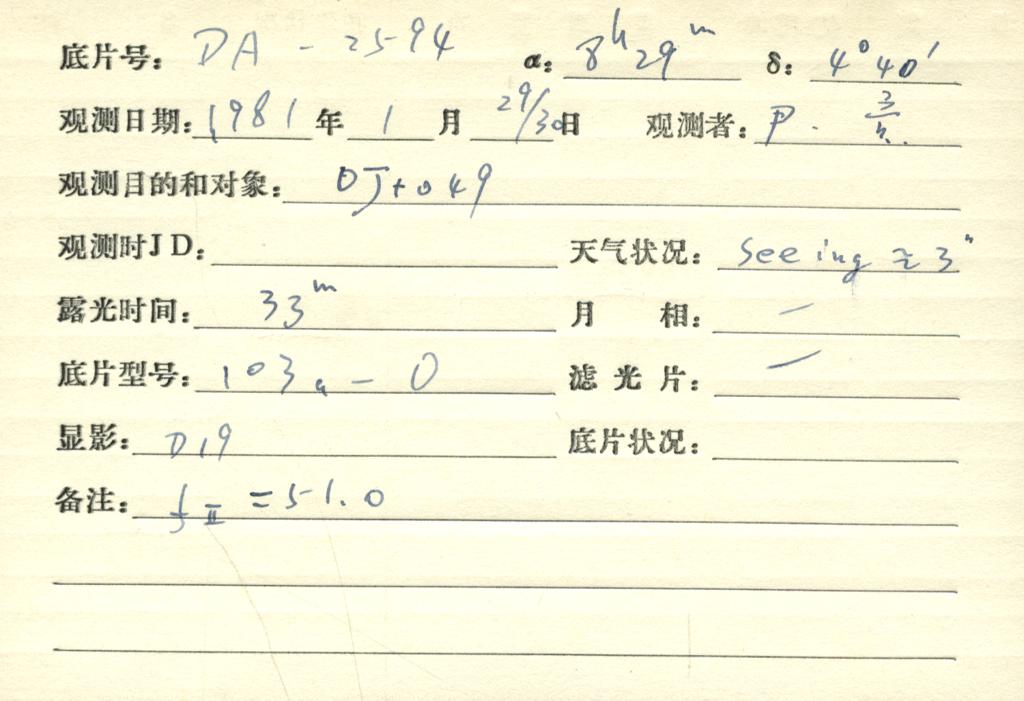 底片号: DA-2594 α: 8ʰ29ᵐ δ: 4°40′
观测日期: 1981年1月29/30日 观测者: P.
观测目的和对象: OJ+049
观测时JD: 天气状况: Seeing ≈ 3"
露光时间: 33ᵐ 月 相: —
底片型号: 103a-O 滤光片: —
显影: D19 底片状况:
备注: f_II = 51.0